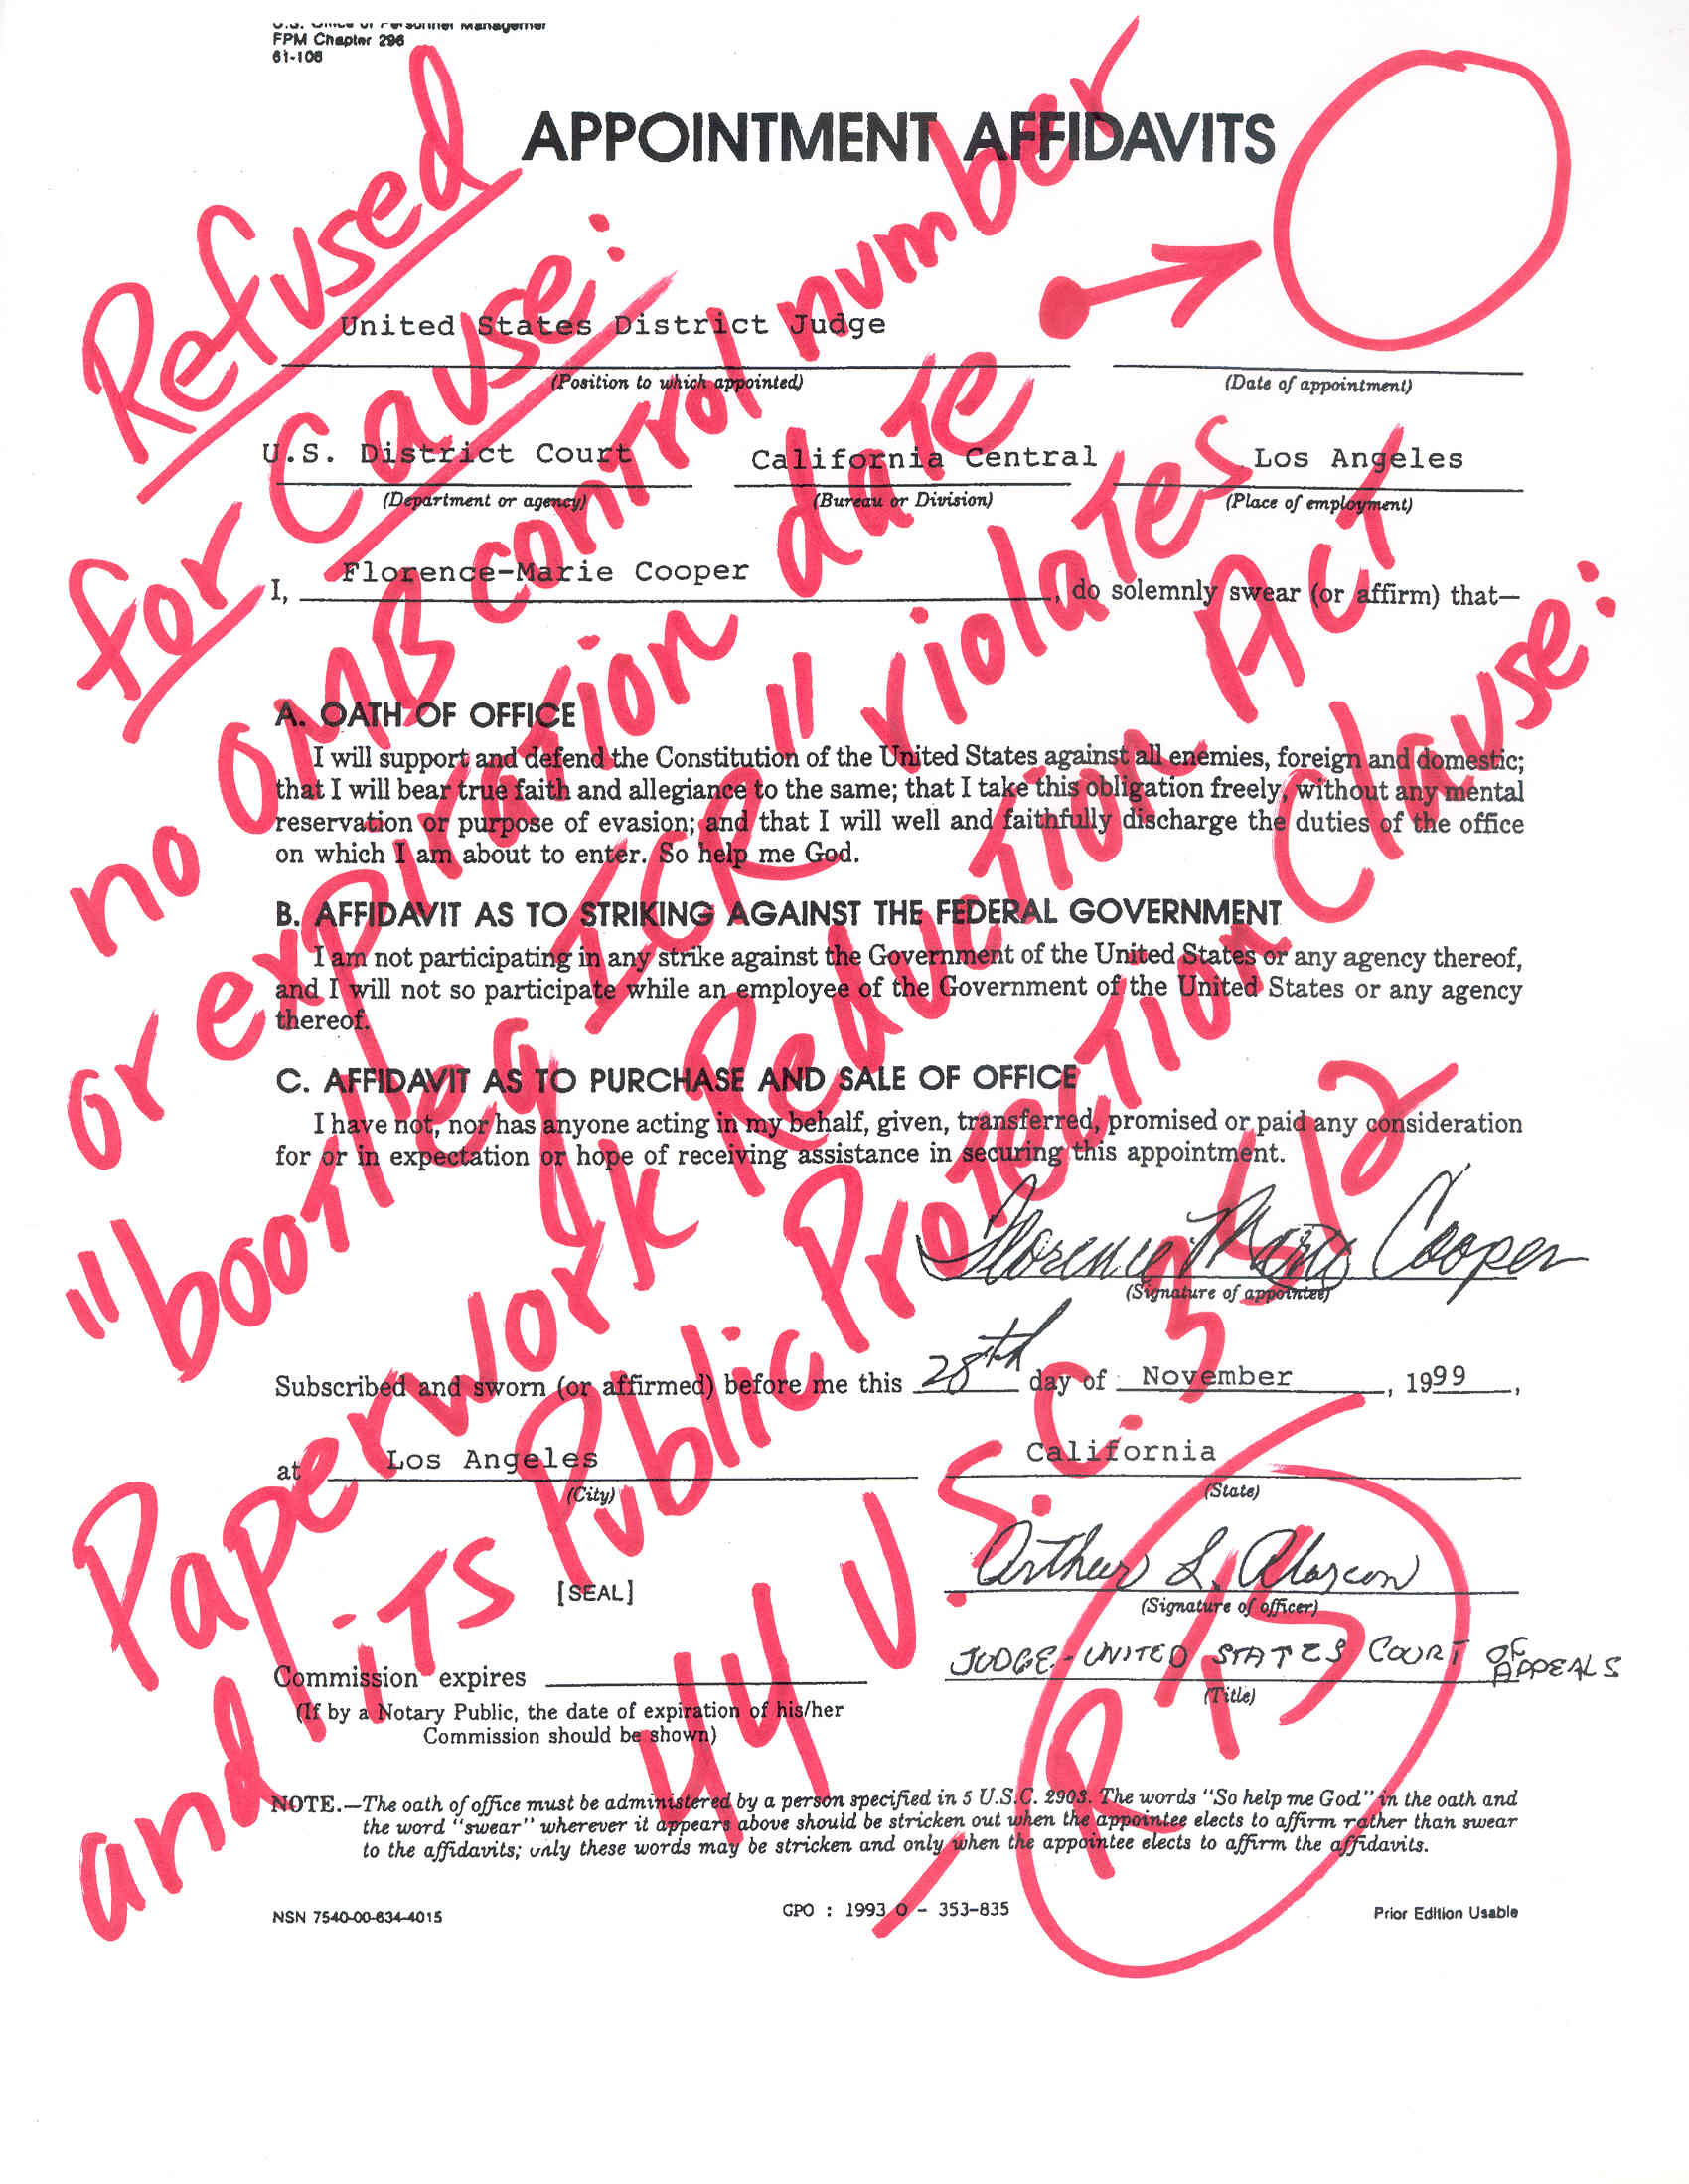 U.S. Office of Personnel Managemer
FPM Chapter 296
61-106
APPOINTMENT AFFIDAVITS
United States District Judge
(Position to which appointed)
(Date of appointment)
U.S. District Court
California Central
Los Angeles
(Department or agency)
(Bureau or Division)
(Place of employment)
I, Florence-Marie Cooper, do solemnly swear (or affirm) that—
A. OATH OF OFFICE
I will support and defend the Constitution of the United States against all enemies, foreign and domestic;
that I will bear true faith and allegiance to the same; that I take this obligation freely, without any mental
reservation or purpose of evasion; and that I will well and faithfully discharge the duties of the office
on which I am about to enter. So help me God.
B. AFFIDAVIT AS TO STRIKING AGAINST THE FEDERAL GOVERNMENT
I am not participating in any strike against the Government of the United States or any agency thereof,
and I will not so participate while an employee of the Government of the United States or any agency
thereof.
C. AFFIDAVIT AS TO PURCHASE AND SALE OF OFFICE
I have not, nor has anyone acting in my behalf, given, transferred, promised or paid any consideration
for or in expectation or hope of receiving assistance in securing this appointment.
Florence Marie Cooper
(Signature of appointee)
Subscribed and sworn (or affirmed) before me this 28th day of November, 1999,
at Los Angeles California
(City)
(State)
Arthur L. Alarcon
[SEAL]
(Signature of officer)
JUDGE-UNITED STATES COURT OF APPEALS
Commission expires
(Title)
(If by a Notary Public, the date of expiration of his/her
Commission should be shown)
NOTE.—The oath of office must be administered by a person specified in 5 U.S.C. 2903. The words "So help me God" in the oath and
the word "swear" wherever it appears above should be stricken out when the appointee elects to affirm rather than swear
to the affidavits; only these words may be stricken and only when the appointee elects to affirm the affidavits.
NSN 7540-00-634-4015
GPO : 1993 O - 353-835
Prior Edition Usable
Refused
for Cause:
no OMB control number
or expiration date
"bootleg ICR" violates
Paperwork Reduction Act
and its Public Protection Clause:
44 U.S.C. 3512
- R 15